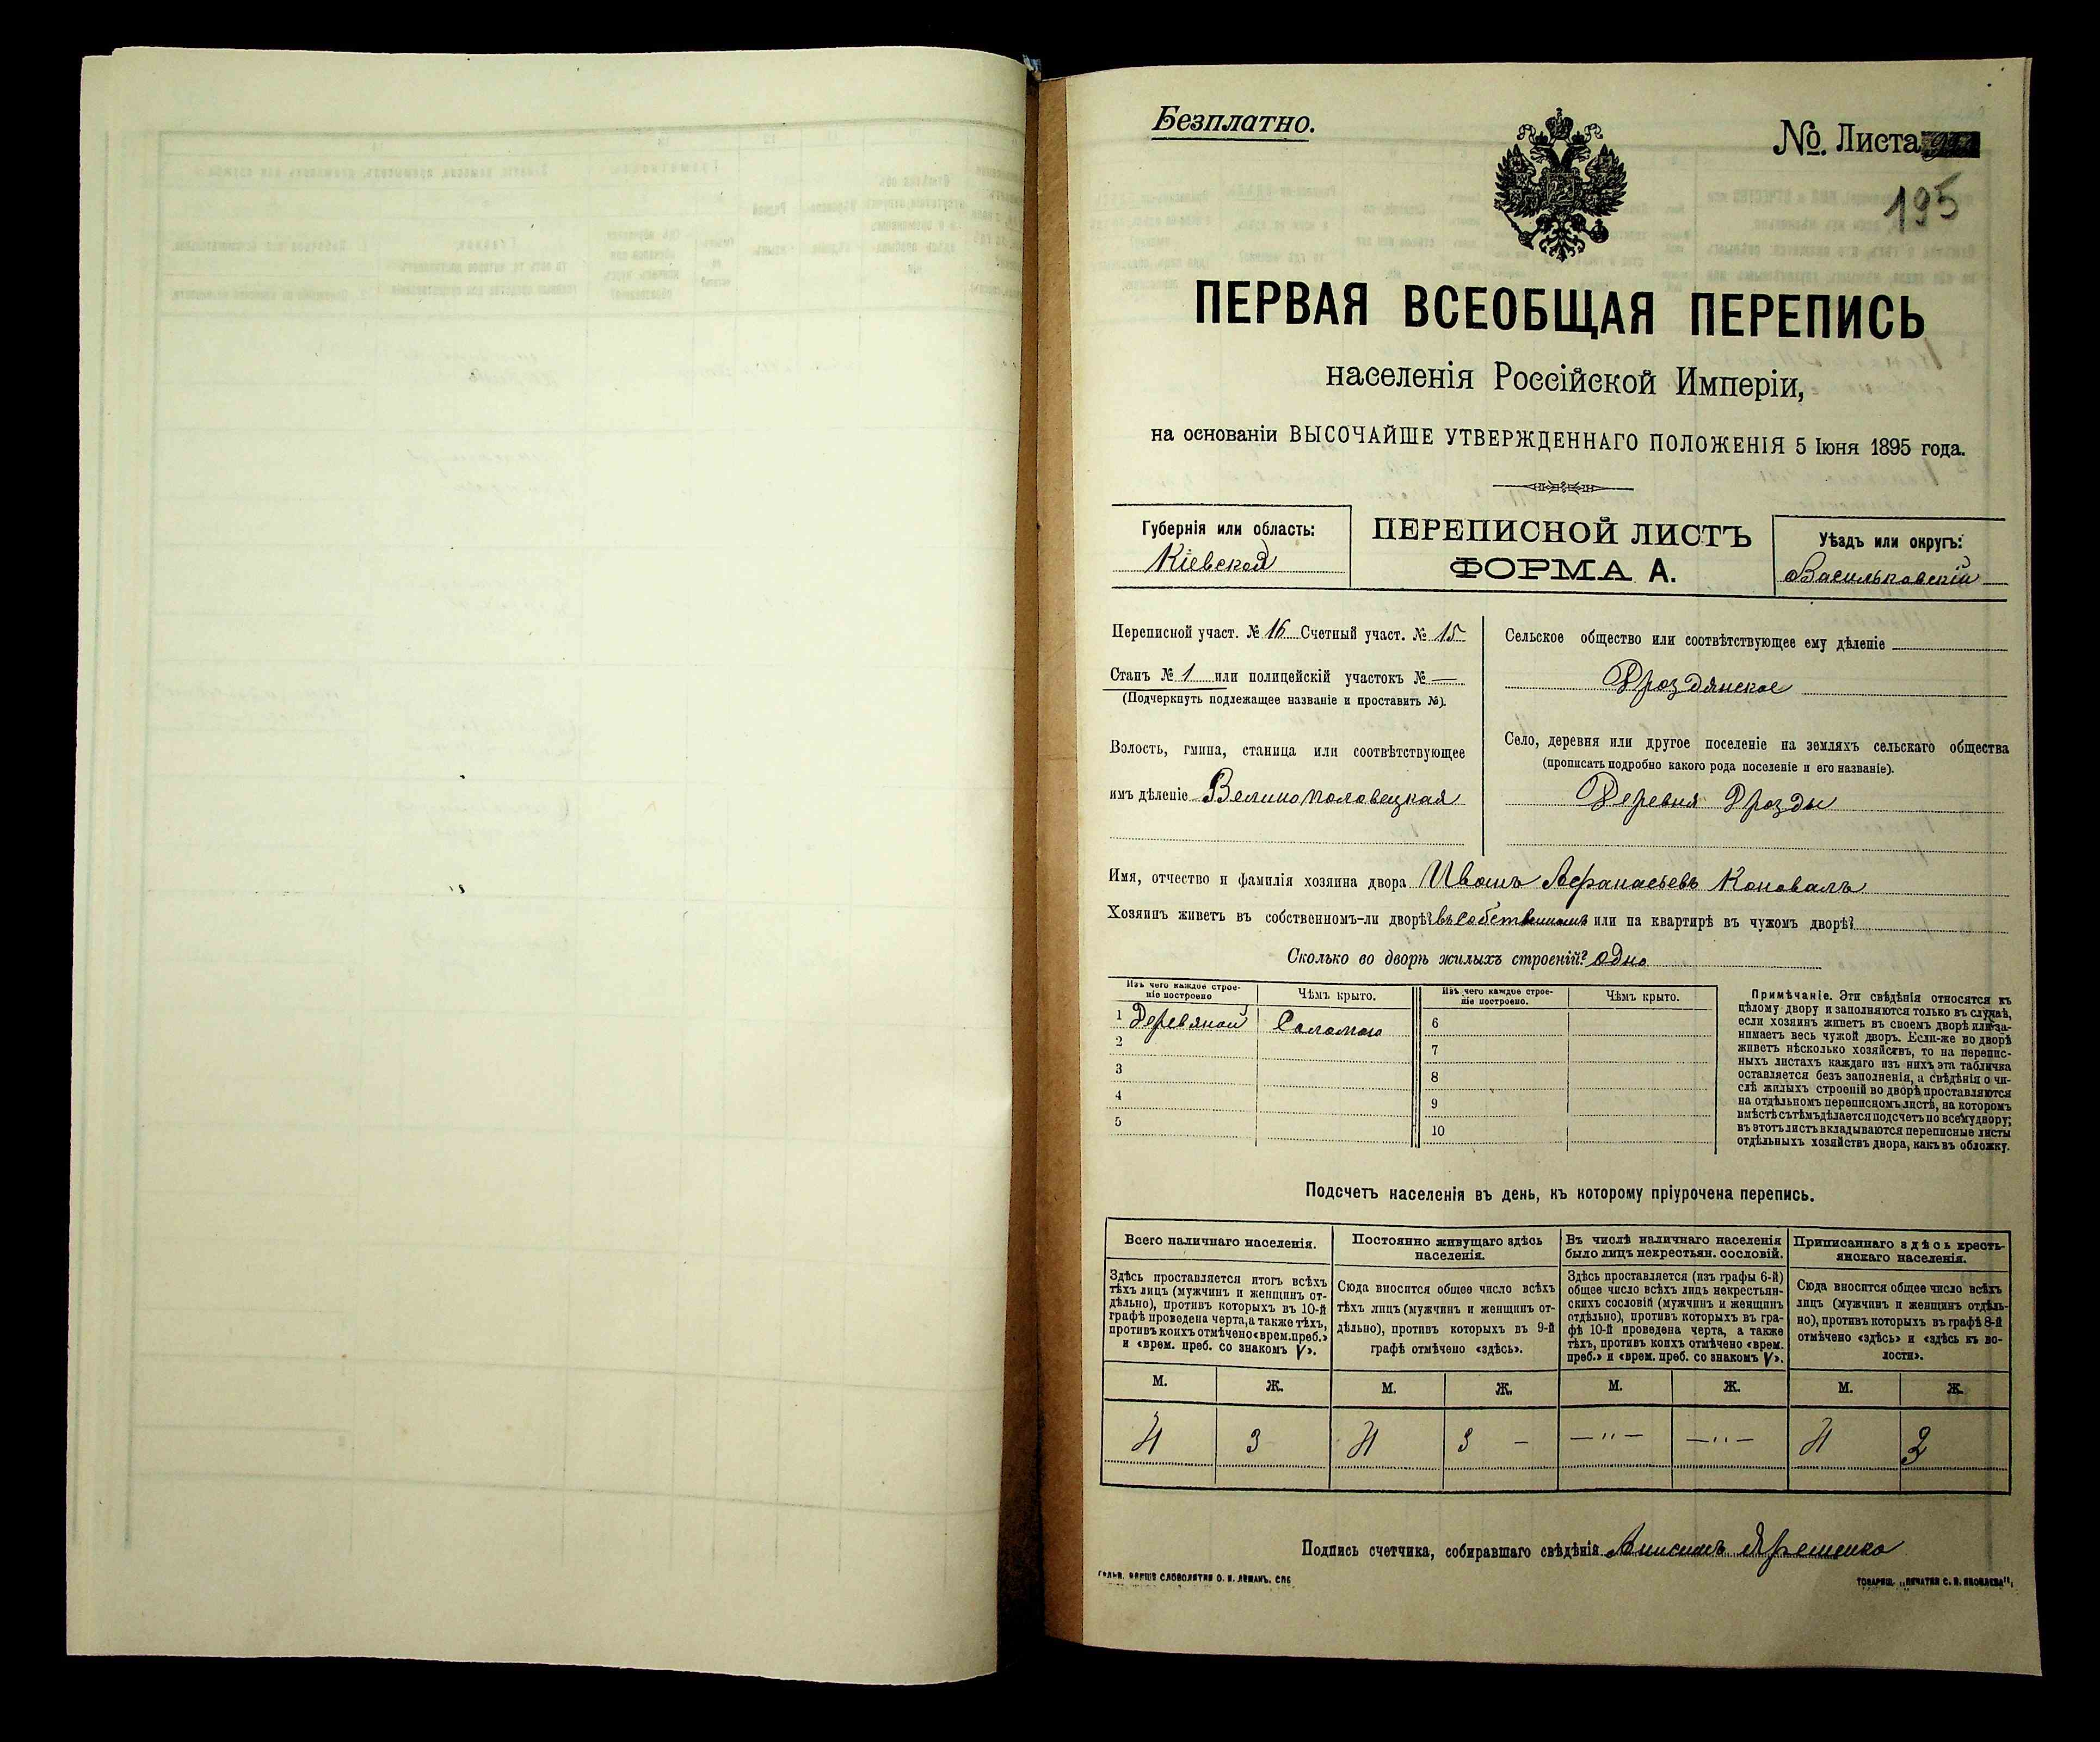 Безплатно.
№ Листа
195
ПЕРВАЯ ВСЕОБЩАЯ ПЕРЕПИСЬ
населенія Россійской Имперіи,
на основаніи ВЫСОЧАЙШЕ УТВЕРЖДЕННАГО ПОЛОЖЕНІЯ 5 Іюня 1895 года.
Губернія или область:
Кіевской
ПЕРЕПИСНОЙ ЛИСТЪ
ФОРМА А.
Уѣздъ или округъ:
Васильковскій
Переписной участ. № 16 Счетный участ. № 15
Станъ № 1 или полицейскій участокъ № —
(Подчеркнуть подлежащее названіе и проставить №).
Волость, гмина, станица или соотвѣтствующее
имъ дѣленіе Великополовецкая
Сельское общество или соотвѣтствующее ему дѣленіе
Дроздянское
Село, деревня или другое поселеніе на земляхъ сельскаго общества
(прописать подробно какого рода поселеніе и его названіе).
Деревня Дрозды
Имя, отчество и фамилія хозяина двора Иванъ Афанасьевъ Коновалъ
Хозяинъ живетъ въ собственномъ-ли дворѣ? въ собственномъ или на квартирѣ въ чужомъ дворѣ?
Сколько во дворѣ жилыхъ строеній? одно
Изъ чего каждое строе-
ніе построено
Чѣмъ крыто.
Изъ чего каждое строе-
ніе построено.
Чѣмъ крыто.
1 Деревяной Соломою
2
3
4
5
6
7
8
9
10
Примѣчаніе. Эти свѣдѣнія относятся къ
цѣлому двору и заполняются только въ случаѣ,
если хозяинъ живетъ въ своемъ дворѣ или за-
нимаетъ весь чужой дворъ. Если-же во дворѣ
живетъ нѣсколько хозяйствъ, то на перепис-
ныхъ листахъ каждаго изъ нихъ эта табличка
оставляется безъ заполненія, а свѣдѣнія о чи-
слѣ жилыхъ строеній во дворѣ проставляются
на отдѣльномъ переписномъ листѣ, на которомъ
вмѣстѣ съ тѣмъ дѣлается подсчетъ по всему двору;
въ этотъ листъ вкладываются переписные листы
отдѣльныхъ хозяйствъ двора, какъ въ обложку.
Подсчетъ населенія въ день, къ которому пріурочена перепись.
Всего наличнаго населенія.
Постоянно живущаго здѣсь
населенія.
Въ числѣ наличнаго населенія
было лицъ некрестьян. сословій.
Приписаннаго здѣсь кресть-
янскаго населенія.
Здѣсь проставляется итогъ всѣхъ
тѣхъ лицъ (мужчинъ и женщинъ от-
дѣльно), противъ которыхъ въ 10-й
графѣ проведена черта, а также тѣхъ,
противъ коихъ отмѣчено «врем. преб.»
и «врем. преб. со знакомъ V».
Сюда вносится общее число всѣхъ
тѣхъ лицъ (мужчинъ и женщинъ от-
дѣльно), противъ которыхъ въ 9-й
графѣ отмѣчено «здѣсь».
Здѣсь проставляется (изъ графы 6-й)
общее число всѣхъ лицъ некрестьян-
скихъ сословій (мужчинъ и женщинъ
отдѣльно), противъ которыхъ въ гра-
фѣ 10-й проведена черта, а также
тѣхъ, противъ коихъ отмѣчено «врем.
преб.» и «врем. преб. со знакомъ V».
Сюда вносится общее число всѣхъ
лицъ (мужчинъ и женщинъ отдѣль-
но), противъ которыхъ въ графѣ 8-й
отмѣчено «здѣсь» и «здѣсь къ во-
лости».
М. Ж. М. Ж. М. Ж. М. Ж.
4 3 4 3 — — " — — " — 4 2
Подпись счетчика, собиравшаго свѣдѣнія Анисимъ Ярешенко
ГАЛЬВ. КЛИШЕ СЛОВОЛИТНИ О. И. ЛЕМАНЪ. СПБ
ТОВАРИЩ. „ПЕЧАТНЯ С. П. ЯКОВЛЕВА“.